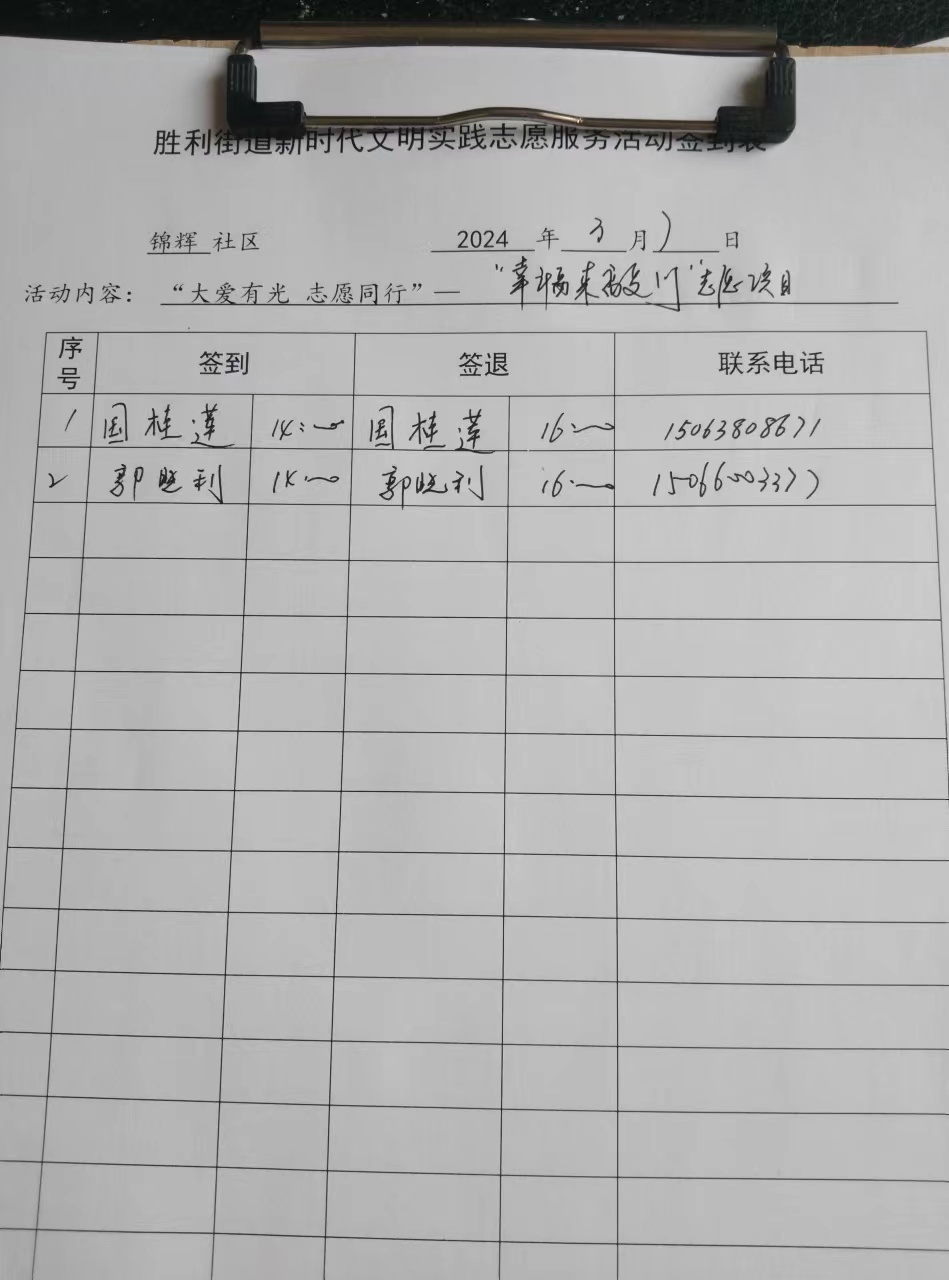 胜利街道新时代文明实践志愿服务活动签到表
锦辉 社区 2024 年 3 月 7 日
活动内容： “大爱有光 志愿同行”— “幸福来敲门”志愿项目
序号 签到 签退 联系电话
1 国桂莲 14:00 国桂莲 16:00 15063808671
2 郭晓利 14:00 郭晓利 16:00 15066003377